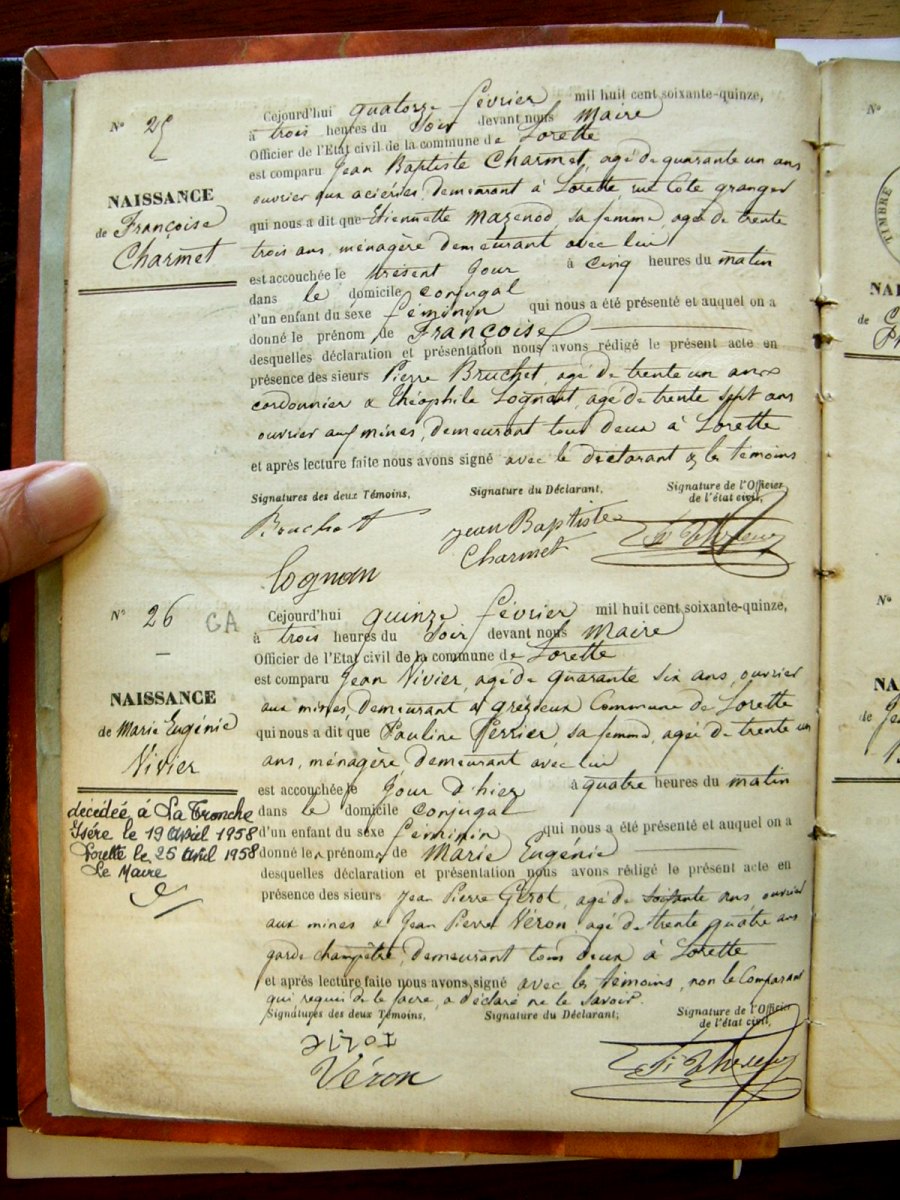 N° 25
NAISSANCE
de Françoise
Charmet
Cejourd'hui quatorze février mil huit cent soixante-quinze,
à trois heures du soir devant nous Maire
Officier de l'Etat civil de la commune de Lorette
est comparu Jean Baptiste Charmet, agé de quarante un ans
ouvrier aux acieries, demeurant à Lorette rue Côte granger
qui nous a dit que Etiennette Mazenod sa femme, agée de trente
trois ans, ménagère demeurant avec lui
est accouchée le présent jour à cinq heures du matin
dans le domicile conjugal
d'un enfant du sexe féminin qui nous a été présenté et auquel on a
donné le prénom de Françoise
desquelles déclaration et présentation nous avons rédigé le présent acte en
présence des sieurs Pierre Bruchet, agé de trente un ans
cordonnier & Théophile Lognant, agé de trente sept ans
ouvrier aux mines, demeurant tous deux à Lorette
et après lecture faite nous avons signé avec le déclarant & les témoins.
Signatures des deux Témoins, Signature du Déclarant, Signature de l'Officier
de l'état civil,
Bruchet Jean Baptiste
Charmet
Lognan
N° 26 GA
NAISSANCE
de Marie Eugénie
Vivier
décédée à La Tronche
Isère le 19 Avril 1958
Lorette le 25 Avril 1958
Le Maire
Cejourd'hui quinze février mil huit cent soixante-quinze,
à trois heures du soir devant nous Maire
Officier de l'Etat civil de la commune de Lorette
est comparu Jean Vivier, agé de quarante six ans, ouvrier
aux mines, demeurant à grézieux Commune de Lorette
qui nous a dit que Pauline Perrier, sa femme, agée de trente un
ans, ménagère demeurant avec lui
est accouchée le jour d'hier à quatre heures du matin
dans le domicile conjugal
d'un enfant du sexe féminin qui nous a été présenté et auquel on a
donné le prénom de Marie Eugénie
desquelles déclaration et présentation nous avons rédigé le présent acte en
présence des sieurs Jean Pierre Girot, agé de soixante ans, ouvrier
aux mines & Jean Pierre Véron, agé de trente quatre ans
garde champêtre, demeurant tous deux à Lorette
et après lecture faite nous avons signé avec les témoins, non le Comparant
qui requis de le faire, a déclaré ne le savoir.
Signatures des deux Témoins, Signature du Déclarant, Signature de l'Officier
de l'état civil,
Véron
N°
TIMBRE
NAI
de
N°
NA
de